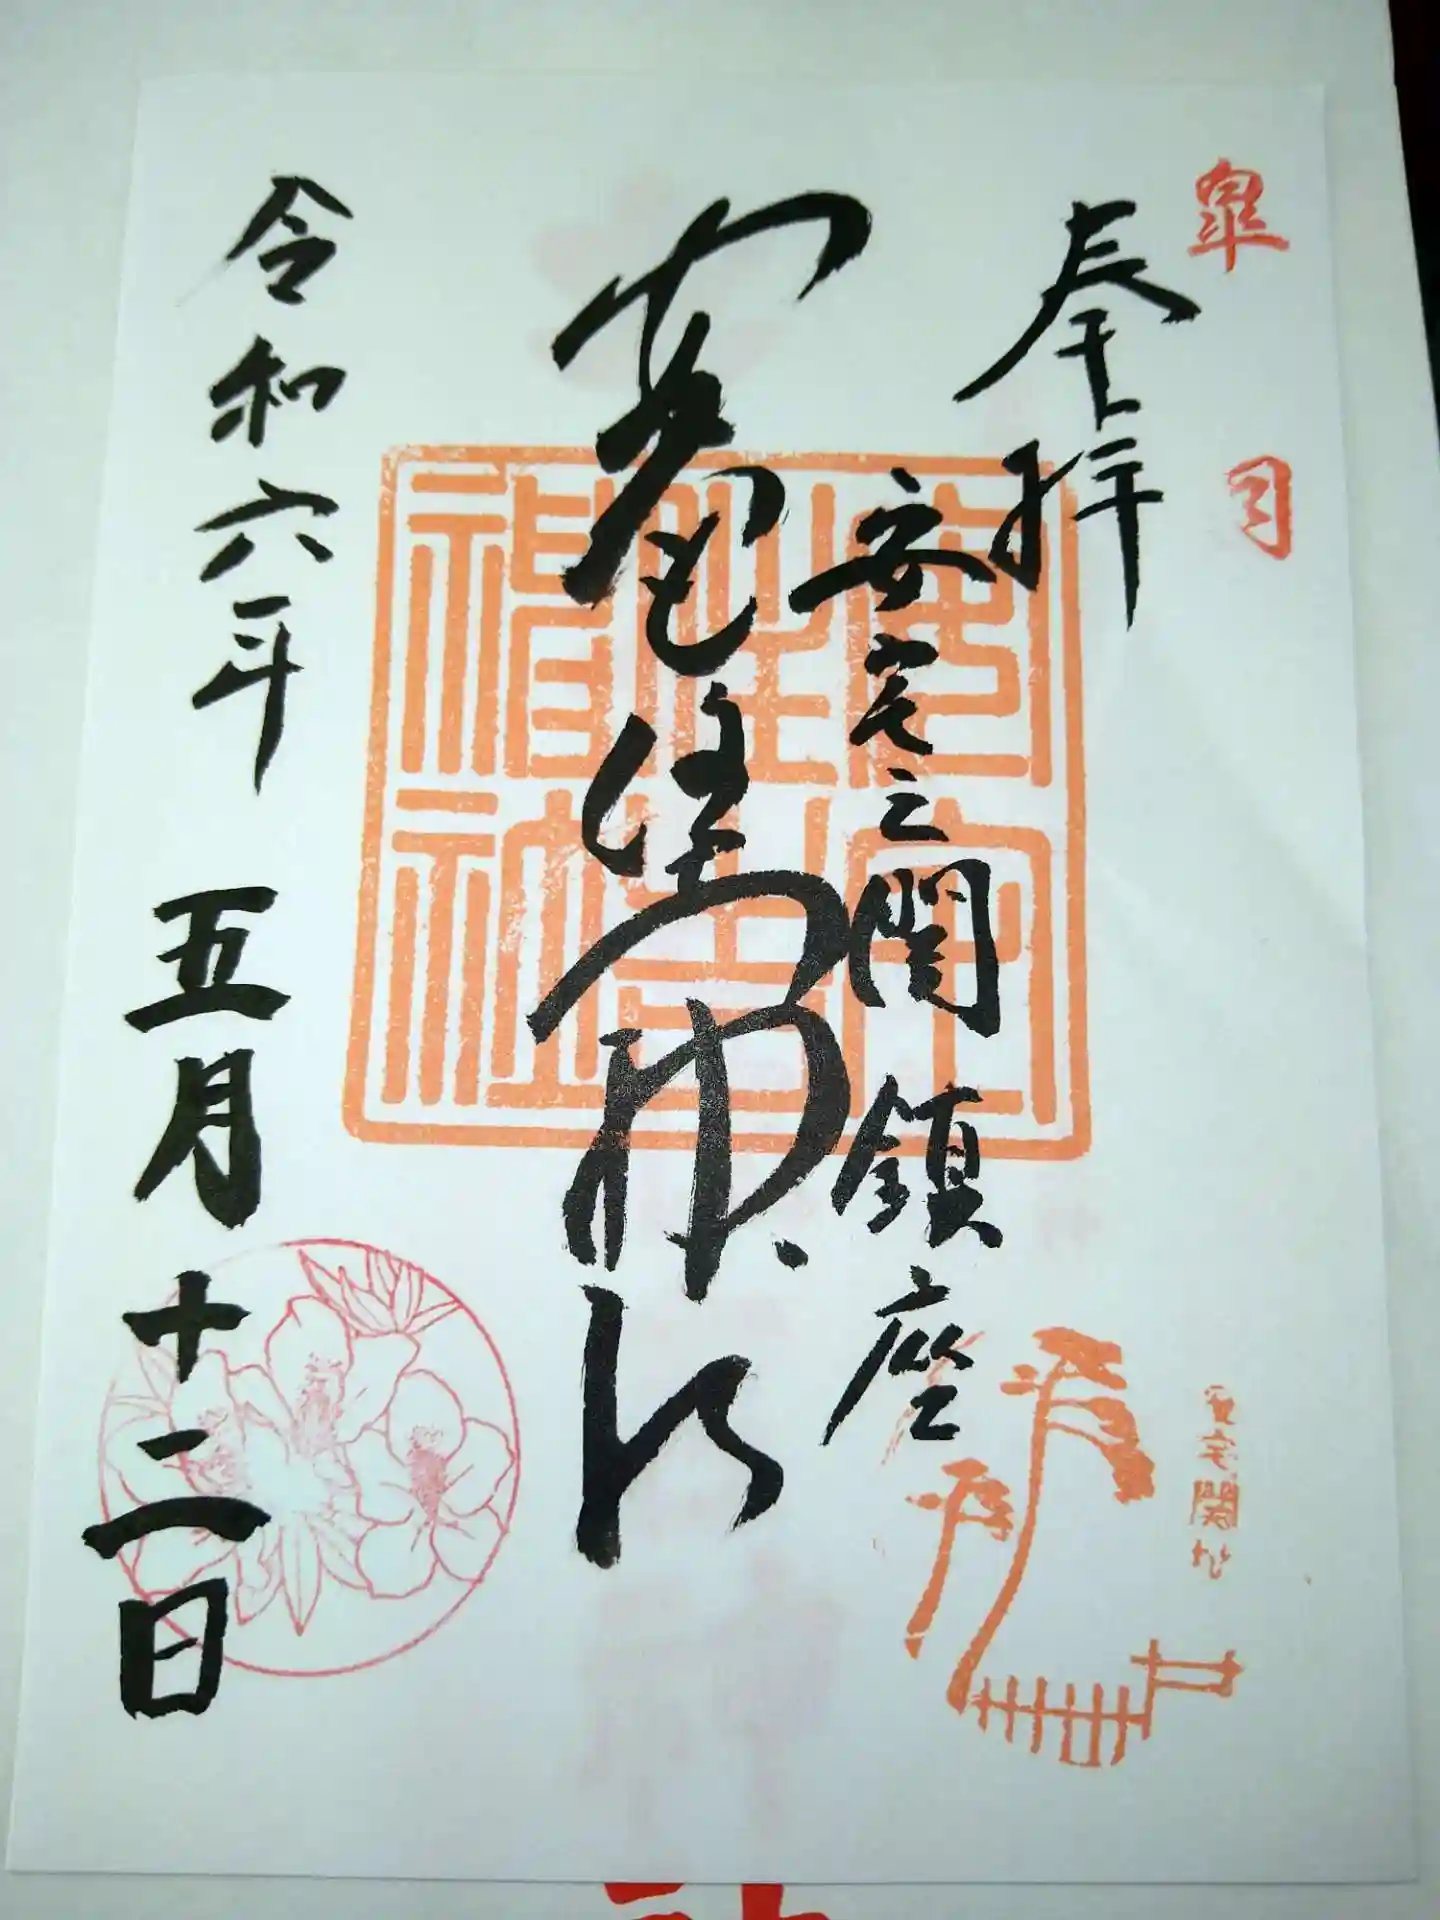 皐月
奉拝
安宅之関鎮座
安宅住吉神社
安宅住吉神社
令和六年 五月十二日
安宅関址